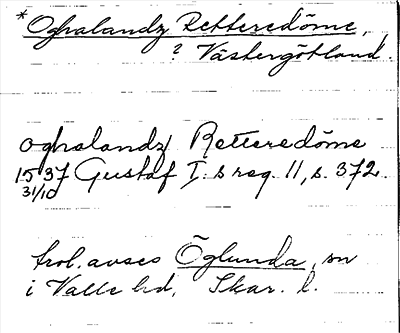 * Oghalandz Retteredöme,
? Västergötland.
oghalandz Retteredöme
1537 Gustaf I:s reg. 11, s. 372.
31/10
trol. avses Öglunda, sn
i Valle hd, Skar. l.